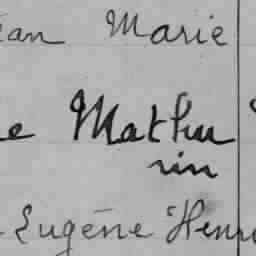 ean Marie
e Mathu
rin
Eugène Henri